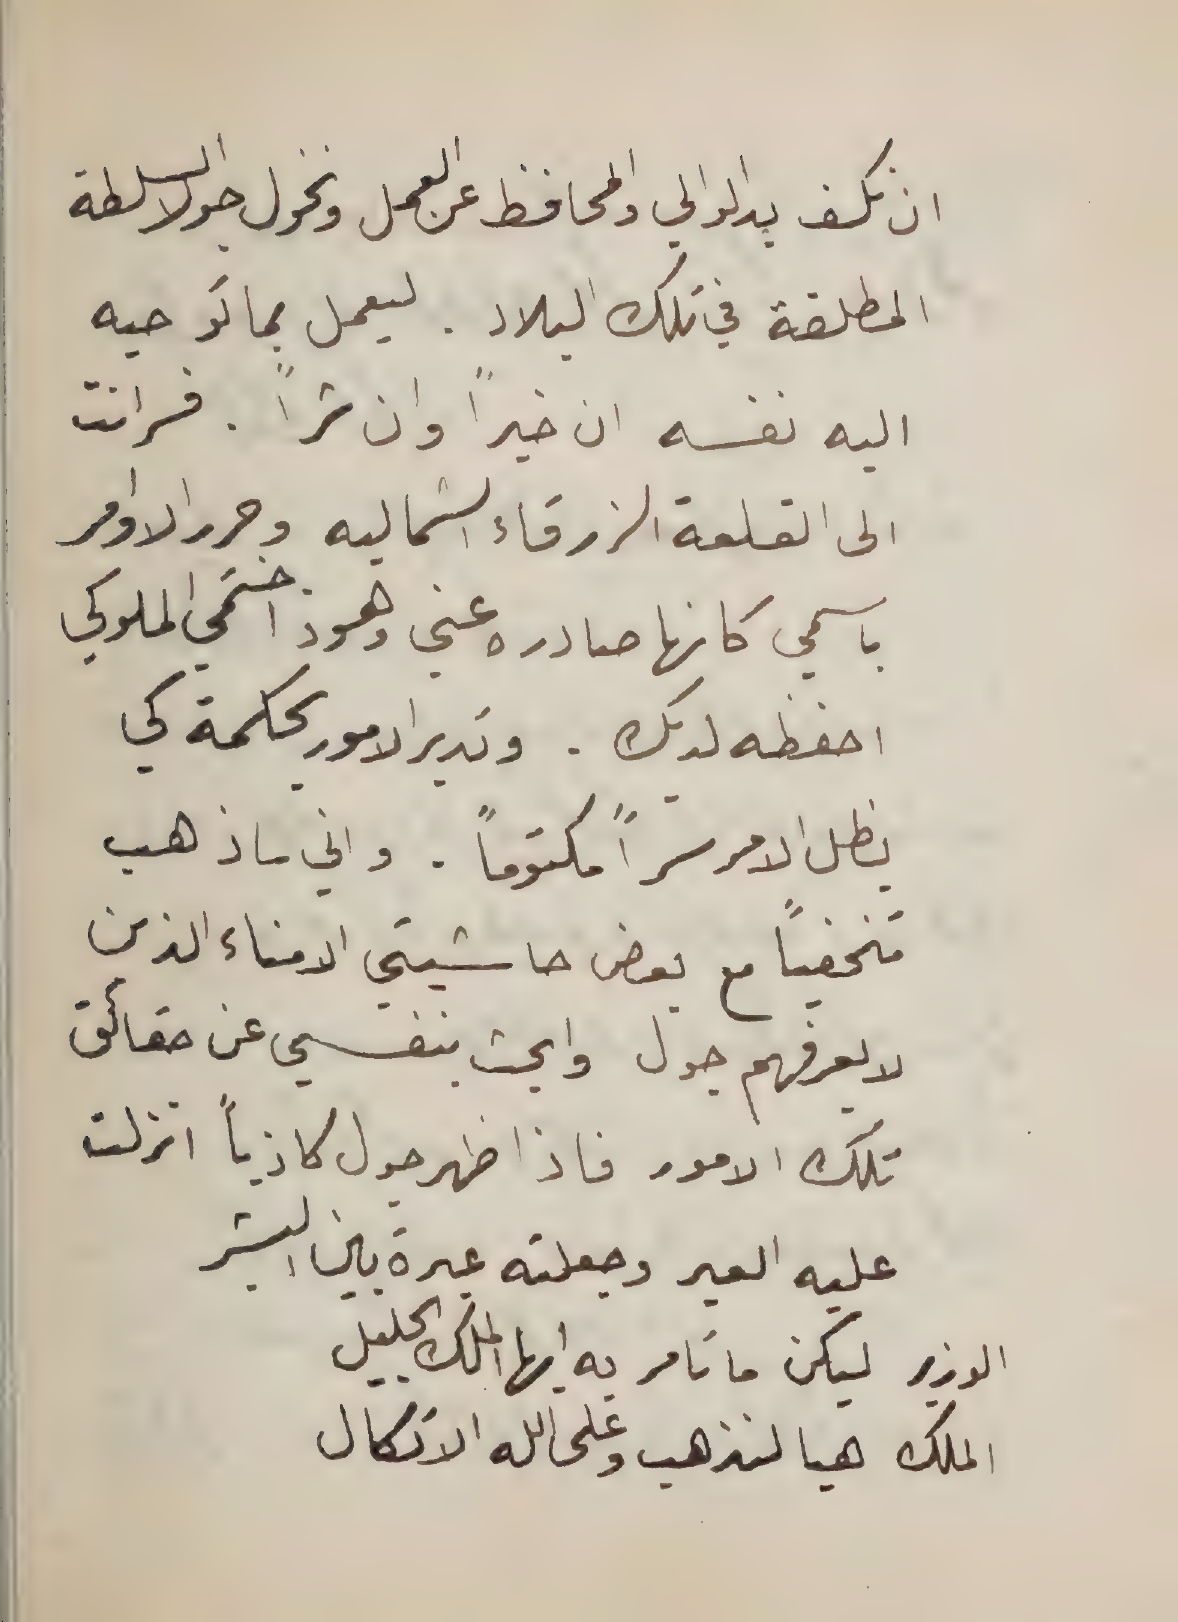 ان نكف يد الوالي والمحافظ عن العمل ونخول جول السلطة
المطلقة في تلك البلاد . ليعمل بما توحيه
اليه نفسه ان خيراً وان شراً . فسر انت
الى القلعة الزرقاء الشماليه وحرر الاوامر
باسمي كانها صادره عني وهوذا ختمي الملوكي
احفظه لديك . وتدبر الامور بحكمة كي
يظل الامر سراً مكتوماً . واني ساذهب
متخفياً مع بعض حاشيتي الامناء الذين
لا يعرفهم جول وابحث بنفسي عن حقائق
تلك الامور فاذا ظهر جول كاذباً انزلت
عليه العبر وجعلته عبرة بين البشر
الوزير ليكن ما تامر به ايها الملك الجليل
الملك هيا لنذهب وعلى الله الاتكال